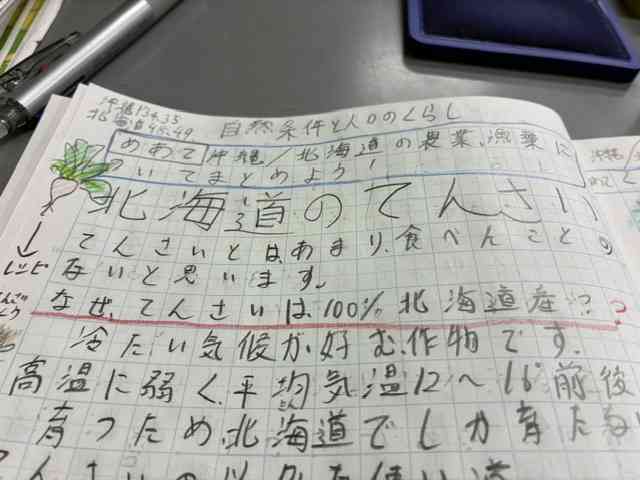 沖縄134.35
北海道45.49
自然条件と人々のくらし
めあて 沖縄/北海道の農業、漁業に
ついてまとめよう!
北海道のてんさい
てんさいとは、あまり、食べんことの
ないと思います。
レシピ
なぜ、てんさいは、100%北海道産??
冷たい気候が好む、作物です。
高温に弱く、平均気温12〜16°前後
育つため、北海道でしか育たな
沖縄